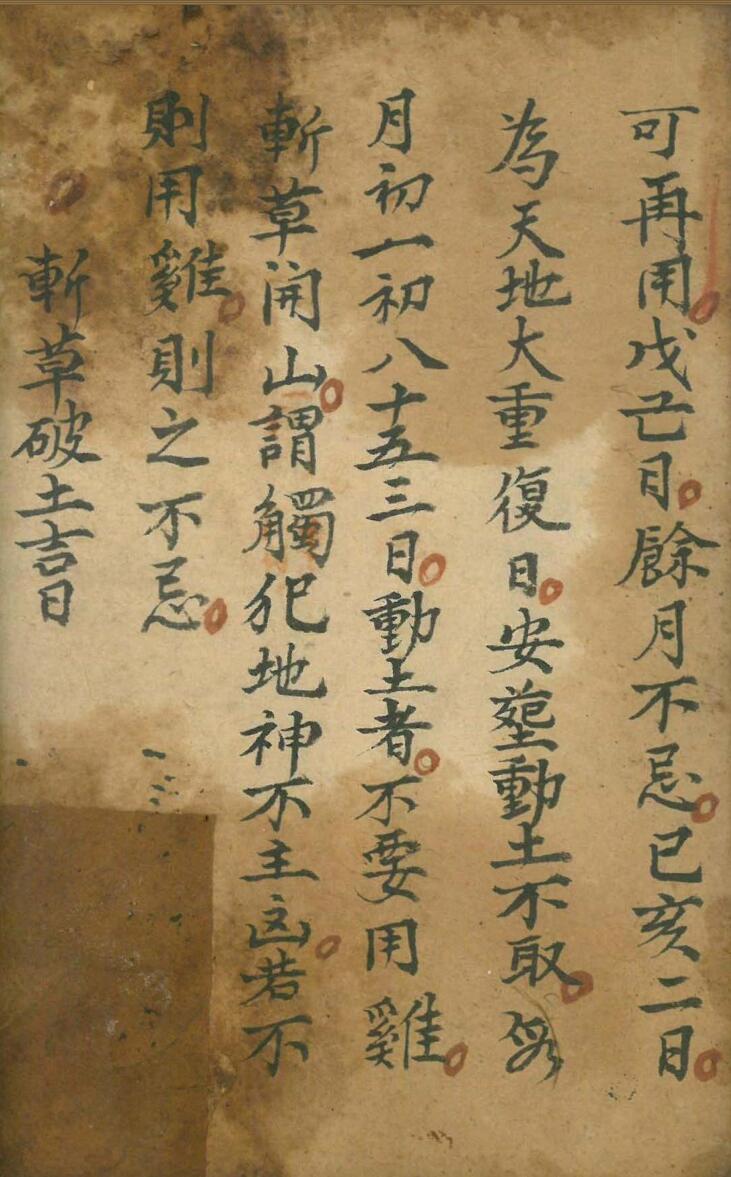 可再用戊亡日餘月不忌巳亥二日
為天地大重復日安塟動土不取每
月初一初八十五三日動土者不要用雞
斬草開山謂觸犯地神不主凶若不
則用雞則之不忌
斬草破土吉日